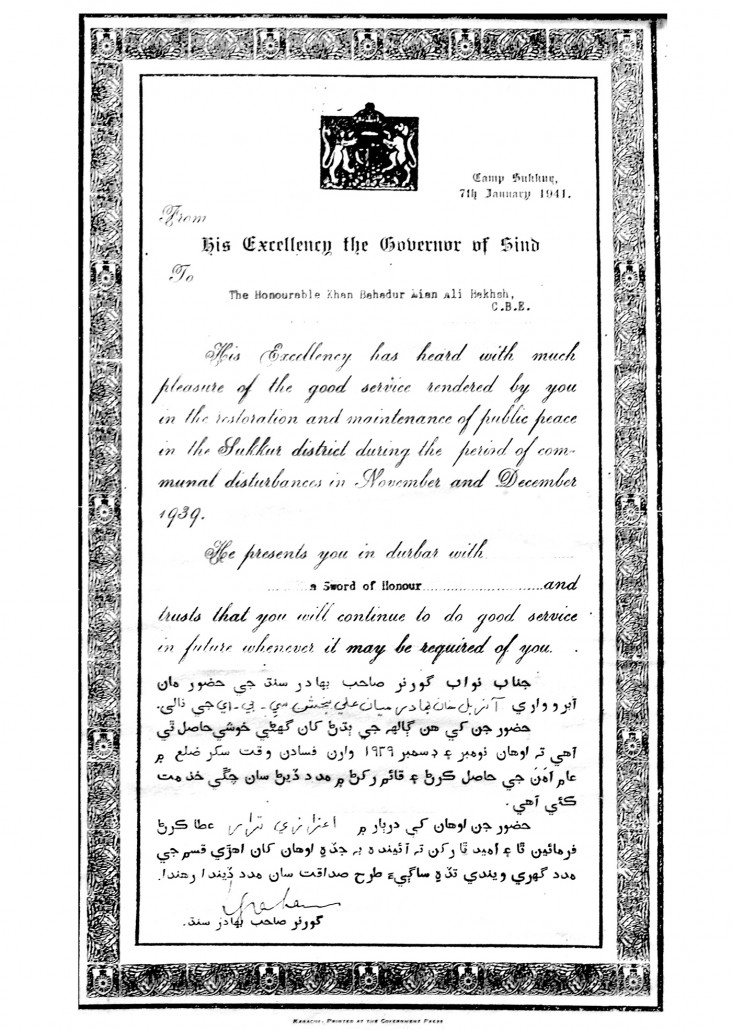 Camp Sukkur,
7th January 1941.
From
His Excellency the Governor of Sind
To
The Honourable Khan Bahadur Mian Ali Bakhsh,
C.B.E.
His Excellency has heard with much
pleasure of the good service rendered by you
in the restoration and maintenance of public peace
in the Sukkur district during the period of com-
munal disturbances in November and December
1939.
He presents you in durbar with
a Sword of Honour........................and
trusts that you will continue to do good service
in future whenever it may be required of you.
جناب نواب گورنر صاحب بهادر سنڌ جي حضور مان
آبرو واري آنريبل خان بهادر ميان علي بخش سي۔ بي۔ اي جي نالي.
حضور جن کي هن ڳالهہ جي ٻڌڻ کان گهڻي خوشي حاصل ٿي
آهي تہ اوهان نومبر ۽ ڊسمبر ١٩٣٩ وارن فسادن وقت سکر ضلع ۾
عام امن جي حاصل ڪرڻ ۽ قائم رکڻ ۾ مدد ڏيڻ سان چڱي خدمت
ڪئي آهي.
حضور جن اوهان کي دربار ۾ اعزازي ترار عطا ڪرڻ
فرمائين ٿا ۽ اميد ٿا رکن تہ آئيندہ بہ جڏهن اوهان کان اهڙي قسم جي
مدد گهري ويندي تڏهن ساڳيءَ طرح صداقت سان مدد ڏيندا رهندا.
گورنر صاحب بهادر سنڌ.
KARACHI: PRINTED AT THE GOVERNMENT PRESS